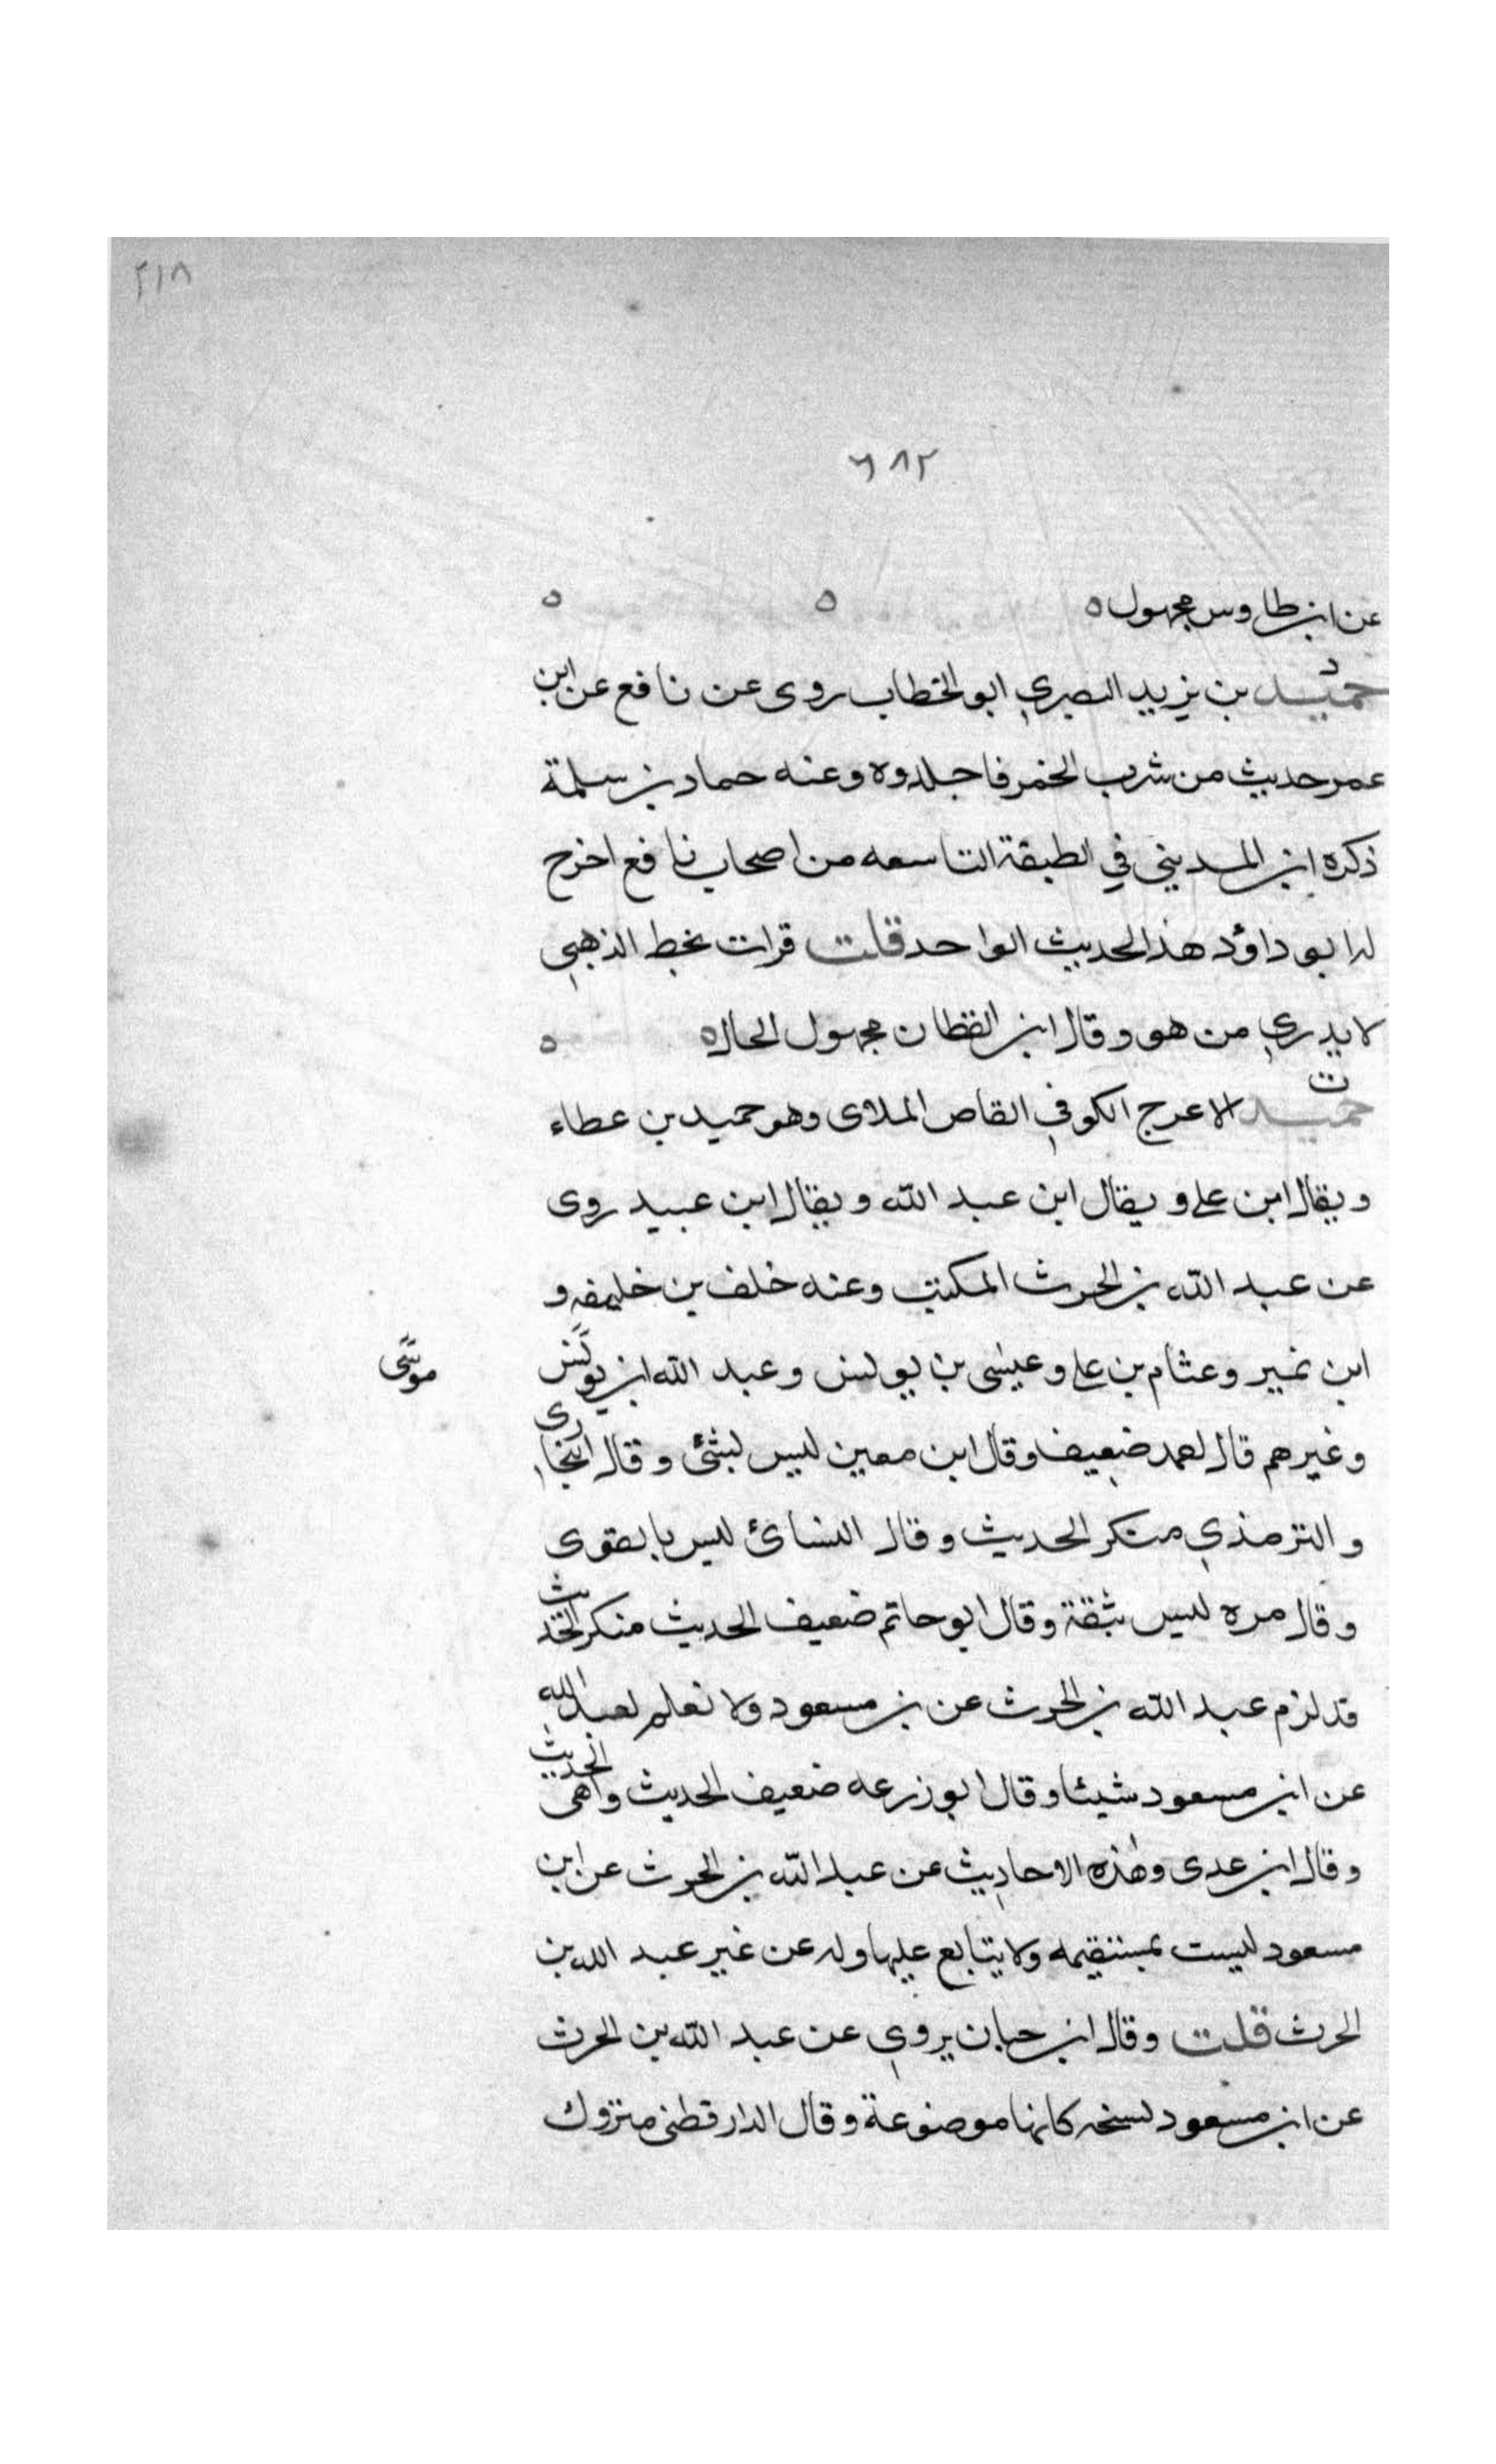 ٢١٨
٦٨٢
عن ابن طاوس مجهول ه ه ه
د
حميد بن يزيد البصري ابو الخطاب روى عن نافع عن ابن
عمر حديث من شرب الخمر فاجلدوه وعنه حماد بن سلمة
ذكره ابن المديني في الطبقة التاسعه من اصحاب نافع اخرج
له ابو داؤد هذالحديث الواحد قلت قرات بخط الذهبي
لا يدري من هو وقال ابن القطان مجهول الحال ه ه
ت
حميد الاعرج الكوفي القاص الملاى وهو حميد بن عطاء
ويقال ابن على ويقال ابن عبد الله ويقال ابن عبيد روى
عن عبد الله بن الحرث المكتب وعنه خلف بن خليفه و
ابن نمير وعثام بن على وعيسى بن يونس وعبد الله ابن يونس
موسى
وغيرهم قال احمد ضعيف وقال ابن معين ليس بشئ وقال البخارى
والترمذي منكر الحديث وقال النسائ ليس بالقوى
وقال مره ليس بثقة وقال ابو حاتم ضعيف الحديث منكر الحديث
قد لزم عبد الله بن الحرث عن بن مسعود ولا نعلم لعبد الله
عن ابن مسعود شيئا وقال ابو زرعه ضعيف الحديث واهى الحديث
وقال ابن عدى وهذه الاحاديث عن عبد الله بن الحرث عن ابن
مسعود ليست بمستقيمه ولا يتابع عليها وله عن غير عبد الله بن
الحرث قلت وقال ابن حبان يروي عن عبد الله بن الحرث
عن ابن مسعود نسخه كانها موضوعة وقال الدارقطنى متروك